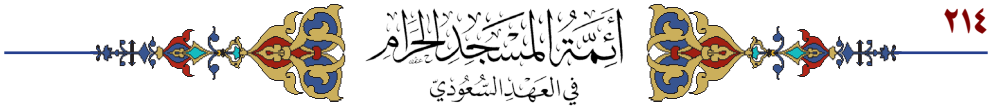 ٢١٤
أَئِمَّةُ المَسْجِدِ الحَرَامِ
فِي العَهْدِ السُّعُودِيّ